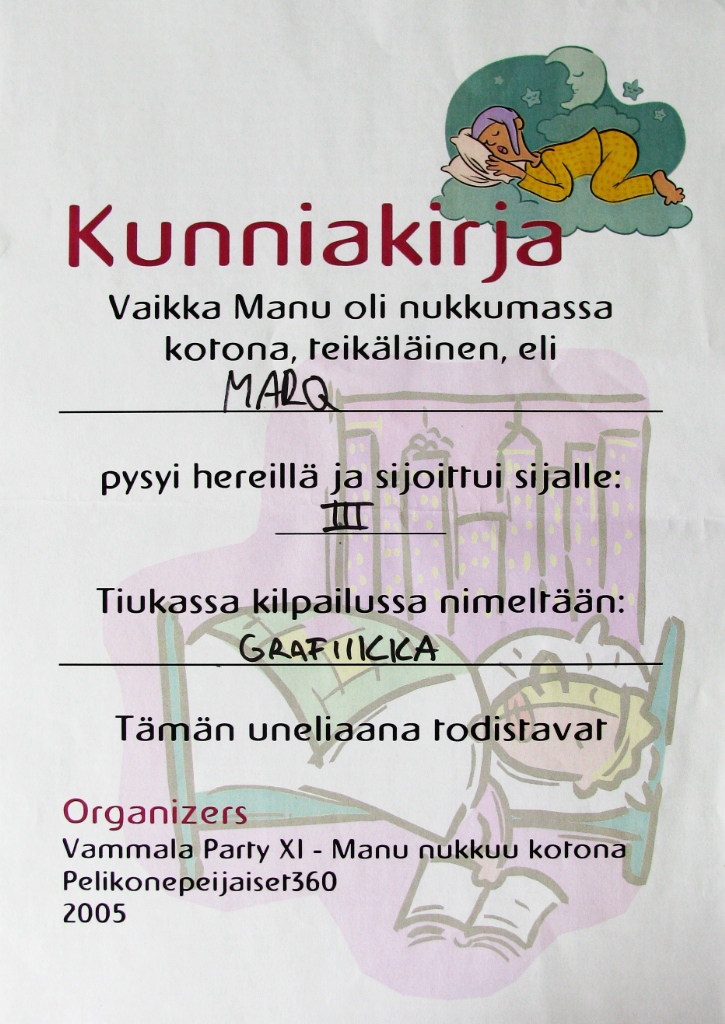 Kunniakirja
Vaikka Manu oli nukkumassa
kotona, teikäläinen, eli
MARQ
pysyi hereillä ja sijoittui sijalle:
III
Tiukassa kilpailussa nimeltään:
GRAFIIKKA
Tämän uneliaana todistavat
Organizers
Vammala Party XI - Manu nukkuu kotona
Pelikonepeijaiset360
2005